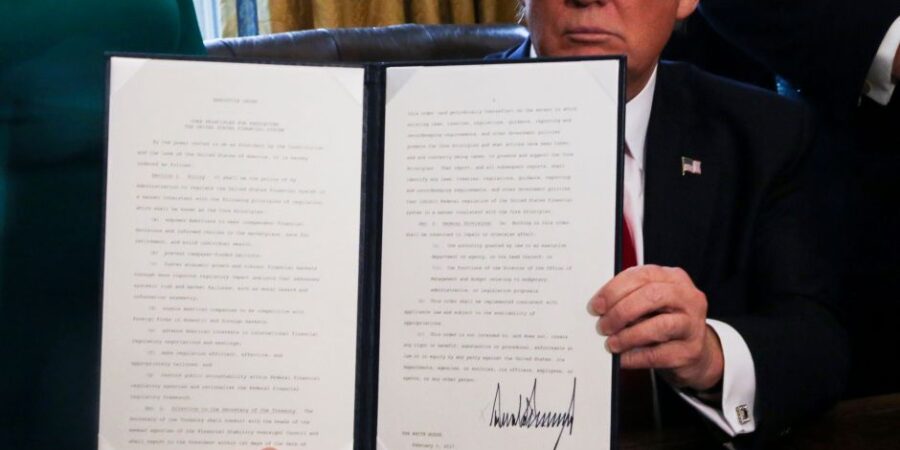 EXECUTIVE ORDER
CORE PRINCIPLES FOR REGULATING
THE UNITED STATES FINANCIAL SYSTEM
By the power vested in me as President by the Constitution
and the laws of the United States of America, it is hereby
ordered as follows:
Section 1. Policy. It shall be the policy of my
Administration to regulate the United States financial system in
a manner consistent with the following principles of regulation,
which shall be known as the Core Principles:
(a) empower Americans to make independent financial
decisions and informed choices in the marketplace, save for
retirement, and build individual wealth;
(b) prevent taxpayer-funded bailouts;
(c) foster economic growth and vibrant financial markets
through more rigorous regulatory impact analysis that addresses
systemic risk and market failures, such as moral hazard and
information asymmetry;
(d) enable American companies to be competitive with
foreign firms in domestic and foreign markets;
(e) advance American interests in international financial
regulatory negotiations and meetings;
(f) make regulation efficient, effective, and
appropriately tailored; and
(g) restore public accountability within Federal financial
regulatory agencies and rationalize the Federal financial
regulatory framework.
Sec. 2. Directive to the Secretary of the Treasury. The
Secretary of the Treasury shall consult with the heads of the
member agencies of the Financial Stability Oversight Council and
shall report to the President within 120 days of the date of
2
this order (and periodically thereafter) on the extent to which
existing laws, treaties, regulations, guidance, reporting and
recordkeeping requirements, and other Government policies
promote the Core Principles and what actions have been taken,
and are currently being taken, to promote and support the Core
Principles. That report, and all subsequent reports, shall
identify any laws, treaties, regulations, guidance, reporting
and recordkeeping requirements, and other Government policies
that inhibit Federal regulation of the United States financial
system in a manner consistent with the Core Principles.
Sec. 3. General Provisions. (a) Nothing in this order
shall be construed to impair or otherwise affect:
(i) the authority granted by law to an executive
department or agency, or the head thereof; or
(ii) the functions of the Director of the Office of
Management and Budget relating to budgetary,
administrative, or legislative proposals.
(b) This order shall be implemented consistent with
applicable law and subject to the availability of
appropriations.
(c) This order is not intended to, and does not, create
any right or benefit, substantive or procedural, enforceable at
law or in equity by any party against the United States, its
departments, agencies, or entities, its officers, employees, or
agents, or any other person.
THE WHITE HOUSE,
February 3, 2017